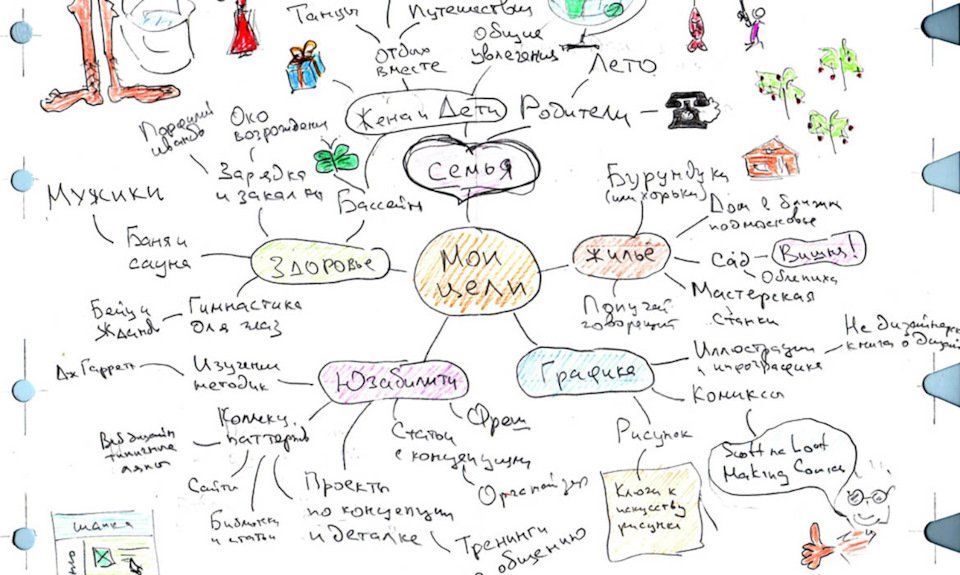 Танцы
Путешествия
Отдых
вместе
общие
увлечения
Лето
Жена и Дети
Родители
Порфирий
Иванов
Око
возрождения
Зарядка
и закалка
Бассейн
семья
Мужики
Баня и
сауна
Здоровье
Гимнастика
для глаз
Бейтс и
Жданов
Мои
цели
Бурундуки
(или хорьки)
Дом в ближнем
подмосковье
Жилье
Сад
Вишня!
Облепиха
Мастерская
Станки
Попугай
говорящий
Юзабилити
Изучение
методик
Дж. Гаррет
Коллекц.
паттернов
Веб дизайн
типичные
ляпы
Сайты
Библиотеки
и статьи
Проекты
по концепции
и деталке
Статьи
с концепциями
Фреш
Органайзер
Тренинги
общению
Графика
Иллюстрации
и инфографика
Не дизайнерск
книга о дизай
Комиксы
Scott Mc Loot
Making Comics
Рисунок
Ключи к
искусству
рисунка
шапка